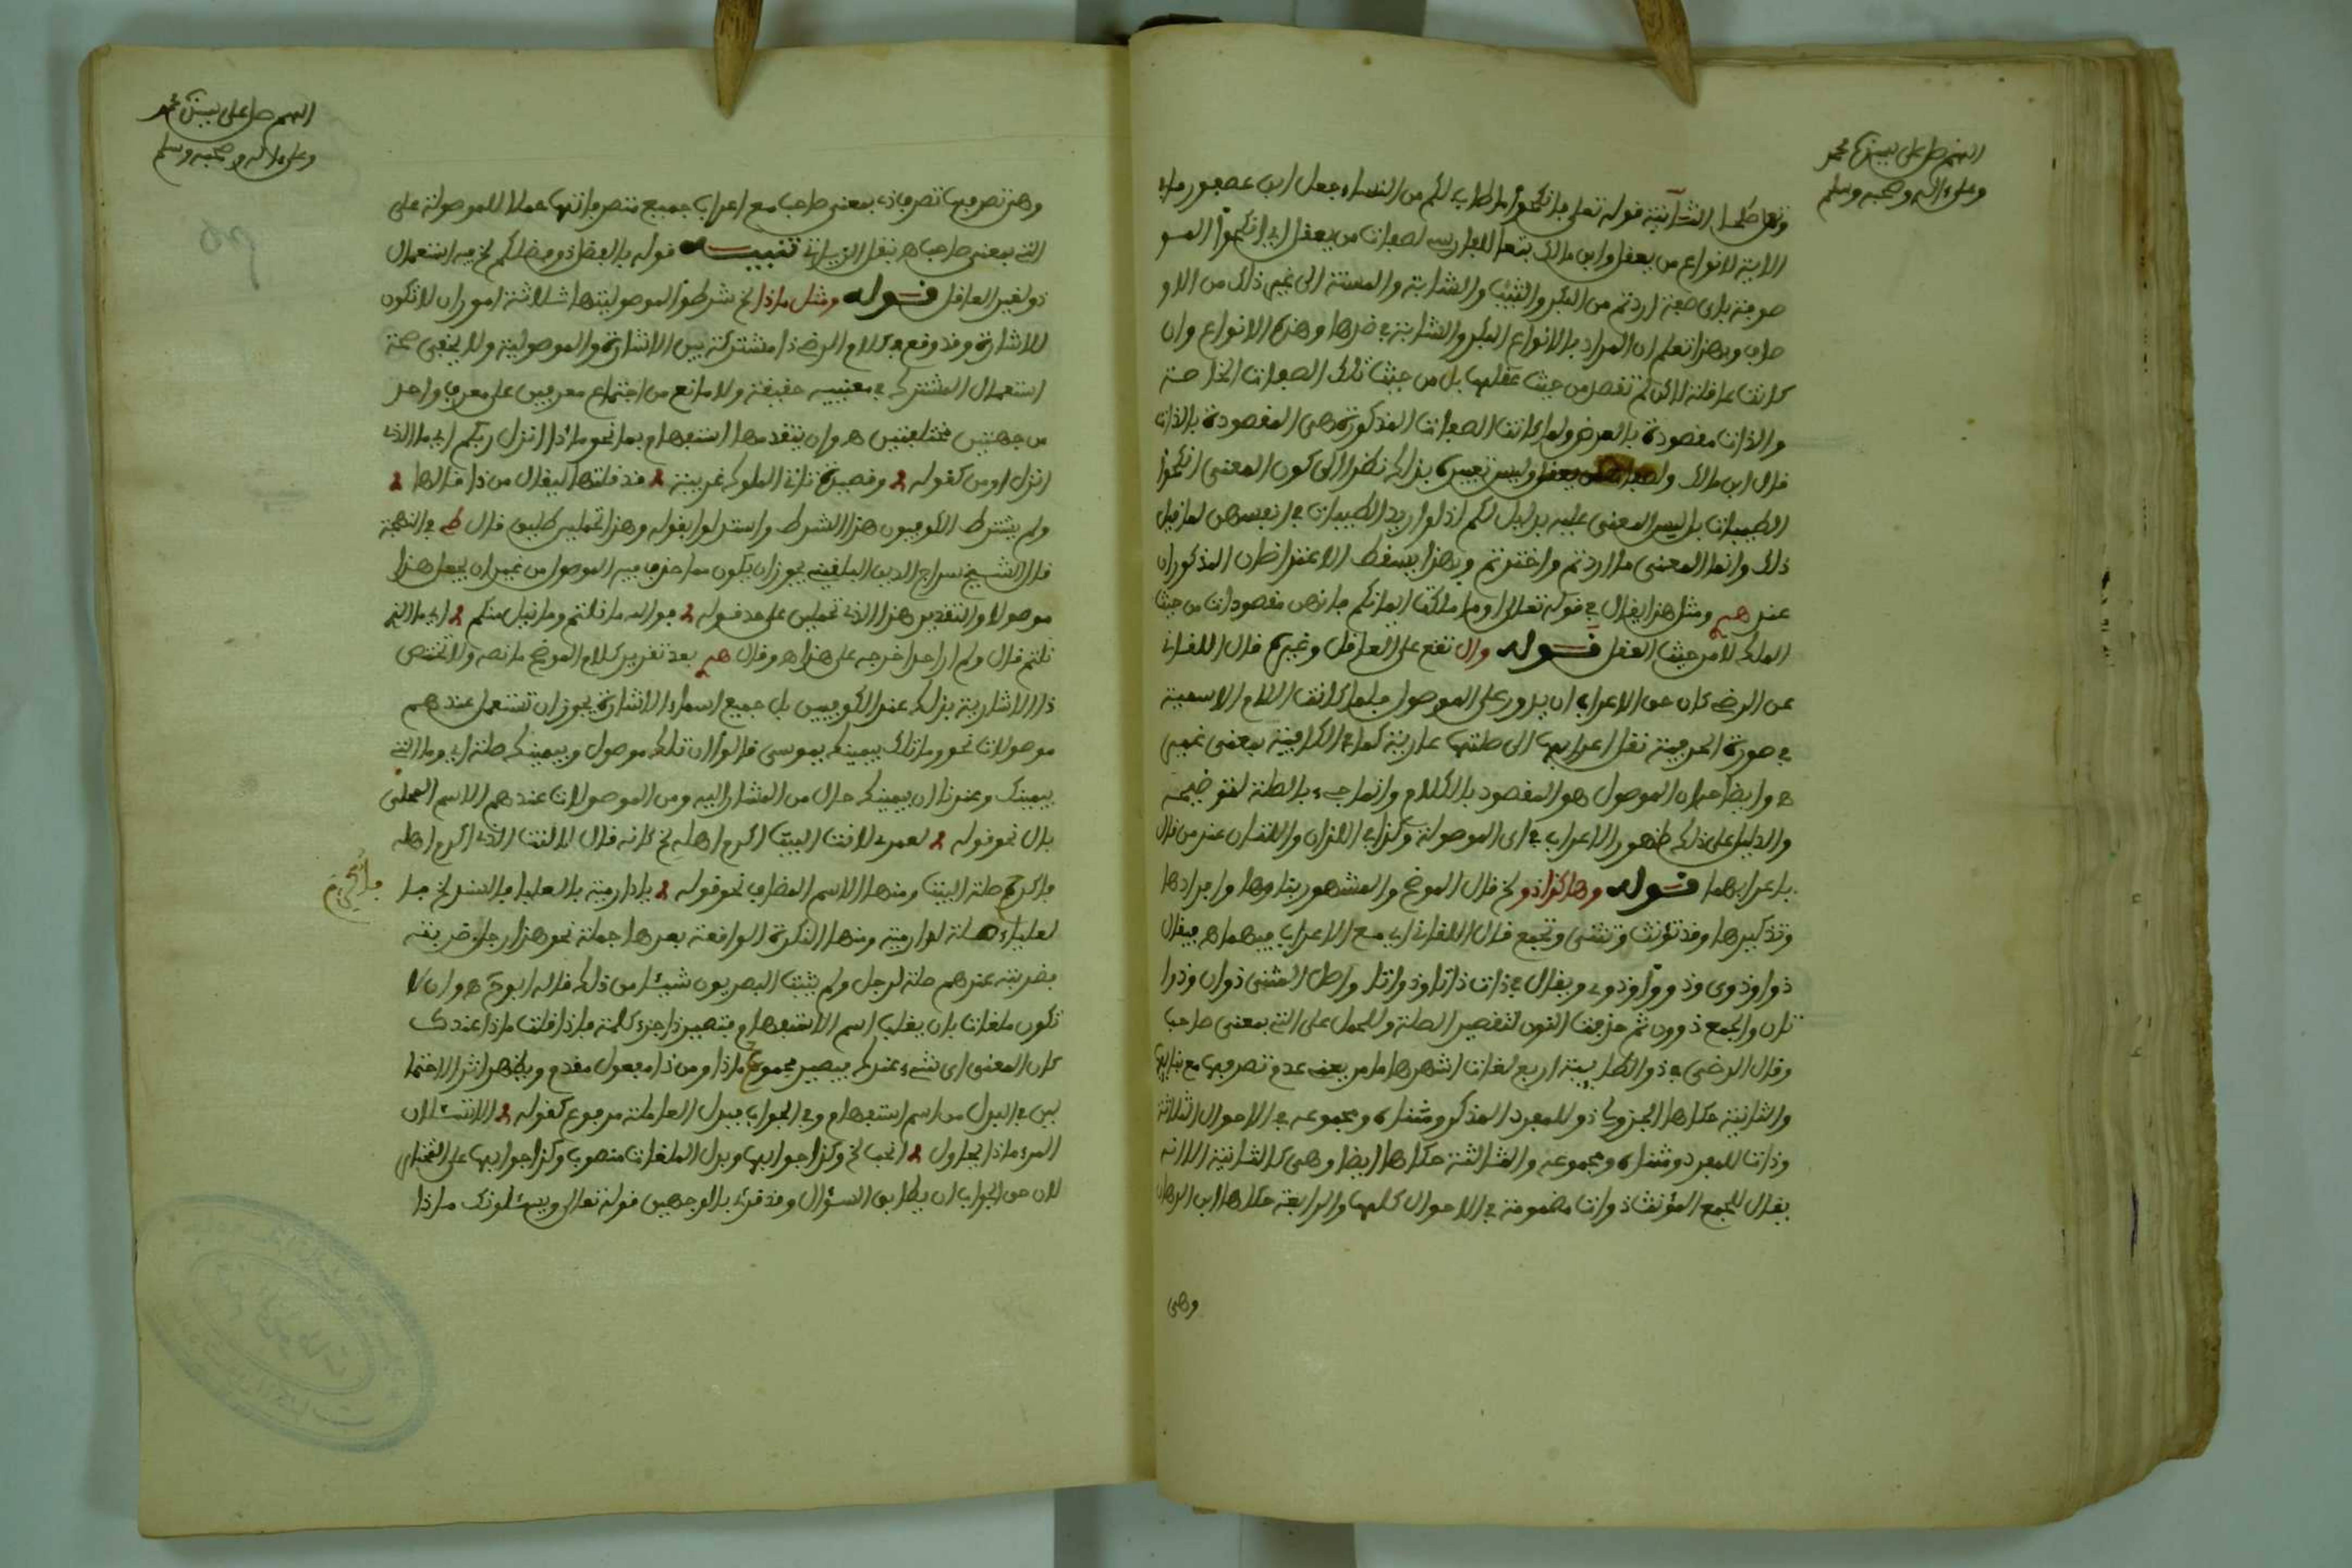 اللهم صل على نبينا محمد
وعلى ءاله وصحبه وسلم
قوله تعلى فانكحوا ما طاب لكم من النساء جعل ابن عصفور ماء
الاية لانواع من يعقل وابن مالك تبعا للفارسي لصفات من يعقل اي انكحوا المو
صوفة باي صفة اردتم من البكر والثيب والشابة والمسنة الى غير ذلك من الاو
صاف وبهذا تعلم ان المراد بالانواع البكر والشابة وضدها وهذه الانواع وان
كانت عاقلة لاكن لم تقصد من حيث عقلها بل من حيث تلك الصفات الخاصة
والذات مقصودة بالعرض ولما كانت الصفات المذكورة هى المقصودة بالذات
قال ابن مالك ولصفات من يعقل وليس تعبيره بذلك نظرا الى كون المعنى انكحوا
الطيبات بل ليس المعنى عليه بدليل لكم اذ لو اريد الطيبات في انفسهن لما قيل
ذلك وانما المعنى ما اردتم واخترتم وبهذا يسقط الاعتراضان المذكوران
عند هم ومثل هذا يقال في قوله تعالى او ما ملكت ايمانكم فانهن مقصودات من حيث
الملك لا من حيث العقل قوله وال تقع على العاقل وغيره قال اللقانى
عن الرضي كان حق الاعراب ان يدور على الموصول فلما كانت اللام الاسمية
في صورة الحرفية نقل اعرابها الى صلتها عارية كما في الا الكافية بمعنى غير
ه وايضاحه ان الموصول هو المقصود بالكلام وانما جيء بالصلة لتوضيحه
والدليل على ذلك ظهور الاعراب في اى الموصولة وكذا في اللذان واللتان عند من قال
باعرابهما قوله وهاكذا ذو لخ قال الموضح والمشهور بناوها وافرادها
وتذكيرها وقد تؤنث وتثنى وتجمع قال اللقانى اي مع الاعراب فيهما ه فيقال
ذوا وذوى وذووا وذوى ويقال في ذات ذاتا وذواتا واصل المثنى ذوان وذوا
تان والجمع ذوون ثم حذفت النون لتقصير الصلة وللحمل على التى بمعنى صاحب
وقال الرضى في ذو الطايية اربع لغات اشهرها ما مر يعنى عدم تصرفها مع بنايها
والثانية حكاها الجزولي ذو للمفرد المذكر ومثناه ومجموعه في الاحوال الثلاثة
وذات للمفرد ومثناه ومجموعه والثالثة حكاها ايضا وهى كالثانية الا انه
يقال لجمع المؤنث ذوات مضمومة في الاحوال كلها والرابعة حكاها ابن الدهان
وهى
اللهم صل على نبينا محمد
وعلى ءاله وصحبه وسلم
وهى تصرفها تصرف ذي بمعنى صاحب مع اعراب جميع متصرفاتها حملا للموصولة على
التى بمعنى صاحب ه نقل الزياتي تنبيه قوله بالفضل ذو فضلكم لخ فيه استعمال
ذو لغير العاقل قوله ومثل ماذا لخ شرطوا لموصوليتها ثلاثة امور ان لا تكون
للاشارة وقد وقع في كلام الرضي ذا مشتركة بين الاشارة والموصولية ولا يخفى صحة
استعمال المشترك في معنييه حقيقة ولا مانع من اجتماع معرفين على معرف واحد
من جهتين مختلفتين ه وان يتقدمها استفهام بما نحو ماذا انزل ربكم اي ما الذى
انزل او من كقوله وقصيدة تاتى الملوك غريبة قد قلتها ليقال من ذا قالها
ولم يشترط الكوفيون هذا الشرط واستدلوا بقوله وهذا تحملين طليق قال ط في البهجة
قال الشيخ سراج الدين البلقينى يجوز ان يكون مما حذف فيه الموصول من غير ان يجعل هذا
موصولا والتقدير هذا الذي تحملين على حد قوله فوالله ما نلتم وما نيل منكم اي ما الذي
نلتم قال ولم ار احدا خرجه على هذا ه وقال هم بعد تقرير كلام الموضح ما نصه ولا تختص
ذا الاشارية بذلك عند الكوفيين بل جميع اسماء الاشارة يجوز ان تستعمل عندهم
موصولات نحو وما تلك بيمينك يموسى قالوا ان تلك موصول وبيمينك صلة اي وما التى
بيمينك وعندنا ان بيمينك حال من المشار اليه ومن الموصولات عندهم الاسم المحلى
بال نحو قوله لعمري لانت البيت اكرم اهله لخ كانه قال لانت الذي اكرم اهله
فاكرم صلة البيت ومنها الاسم المضاف نحو قوله يا دار مية بالعلياء فالسند لخ فبا
لعلياء صلة لدار مية ومنها النكرة الواقعة بعدها جملة نحو هذا رجل ضربته
فضربته عندهم صلة لرجل ولم يثبت البصريون شيئا من ذلك قاله ابو ح ه وان لا
تكون ملغاة بان يغلب اسم الاستفهام فتصير ذا جزء كلمة فاذا قلت ماذا عندك
كان المعنى اى شيء عندك فيصير مجموع ماذا ومن ذا مفعول مقدم ويظهر اثر الاحتما
لين في البدل من اسم استفهام وفي الجواب فبدل العاملة مرفوع كقوله الا تسئلان
المرء ماذا يحاول انحب لخ وكذا جوابها وبدل الملغاة منصوب وكذا جوابها على المختار
لان حق الجواب ان يطابق السؤال وقد قرئ بالوجهين قوله تعالى ويسئلونك ماذا